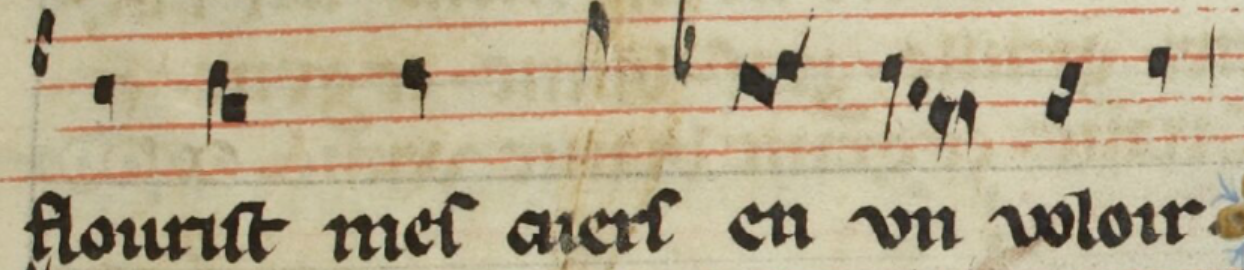 flourist mes cuers en vn voloir.